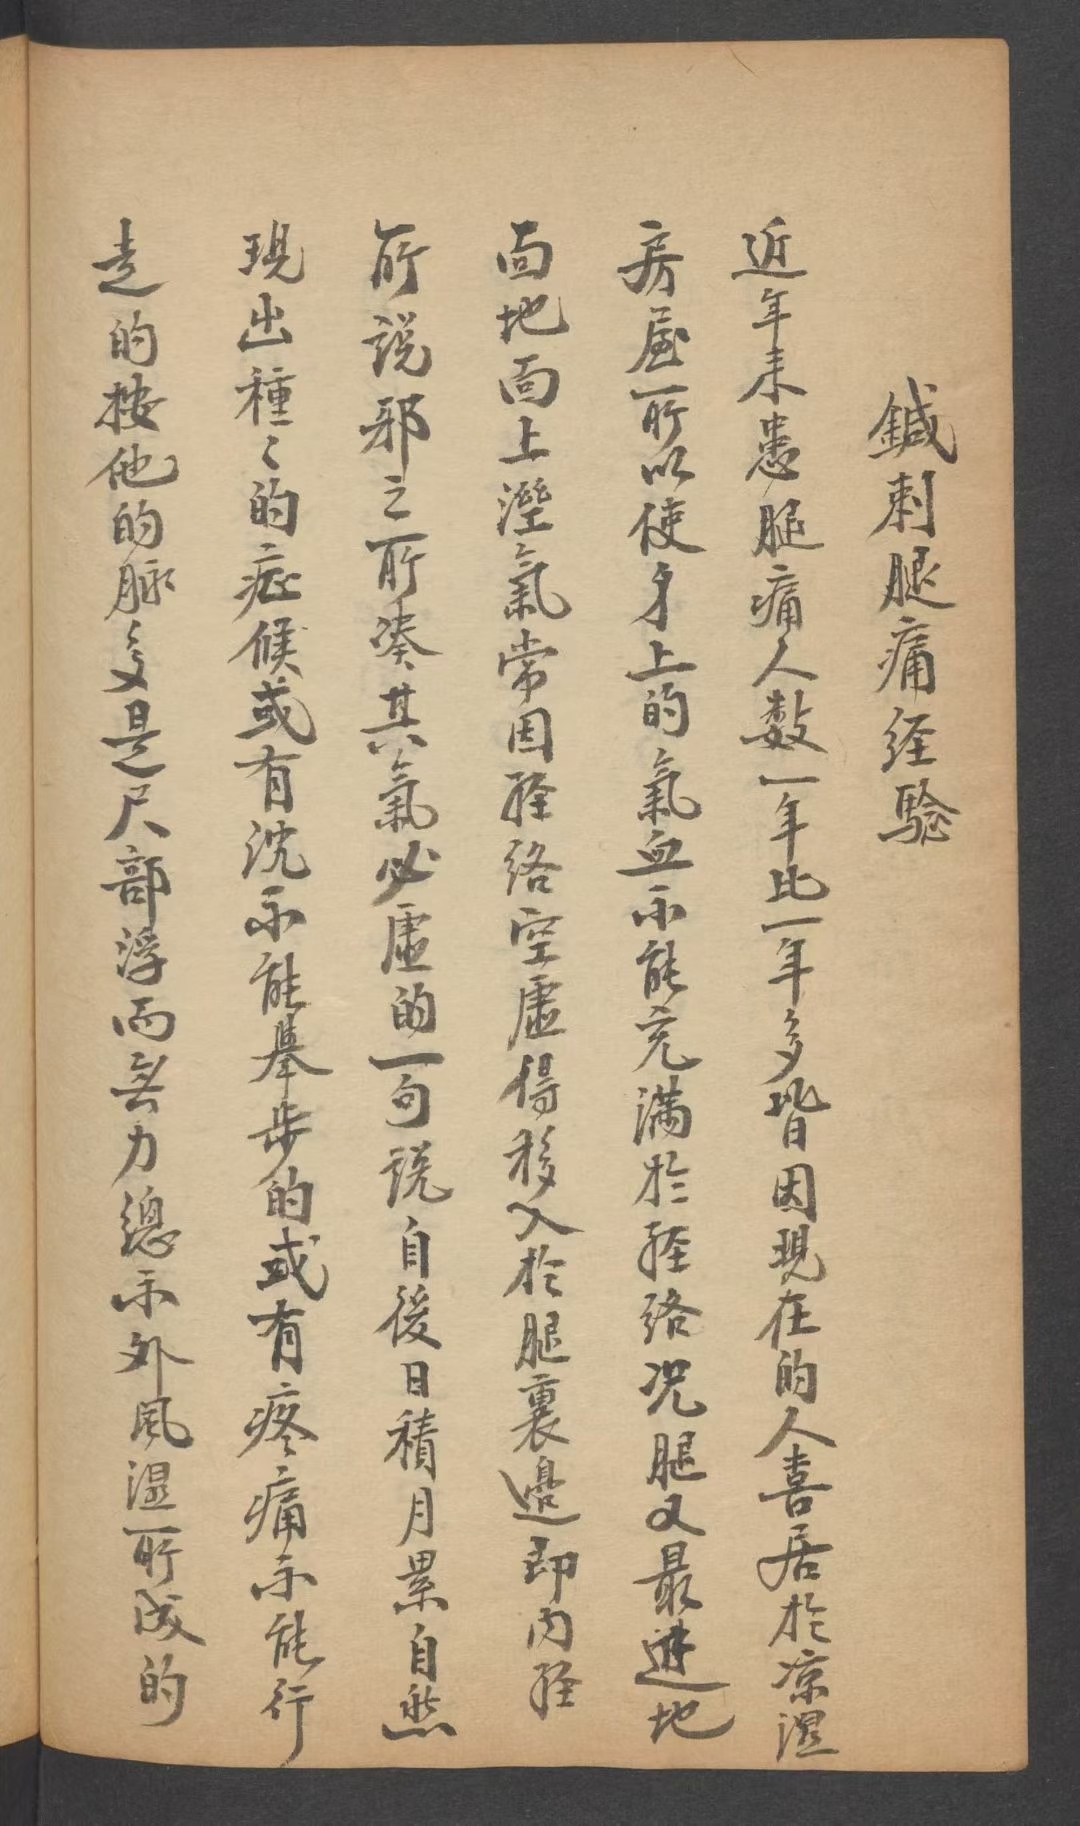 鍼刺腿痛经驗
近年来患腿痛人数一年比一年多皆因現在的人喜居於凉濕
房屋所以使身上的氣血不能充满於経络况腿又最進地
面地面上溼氣常因経络空虚得移入於腿裏邊即内経
所説邪之所凑其氣必虚的一句説自後日積月累自然
現出種々的症候或有沈不能举步的或有疼痛不能行
走的按他的脉多是尺部浮而無力總不外風濕所成的